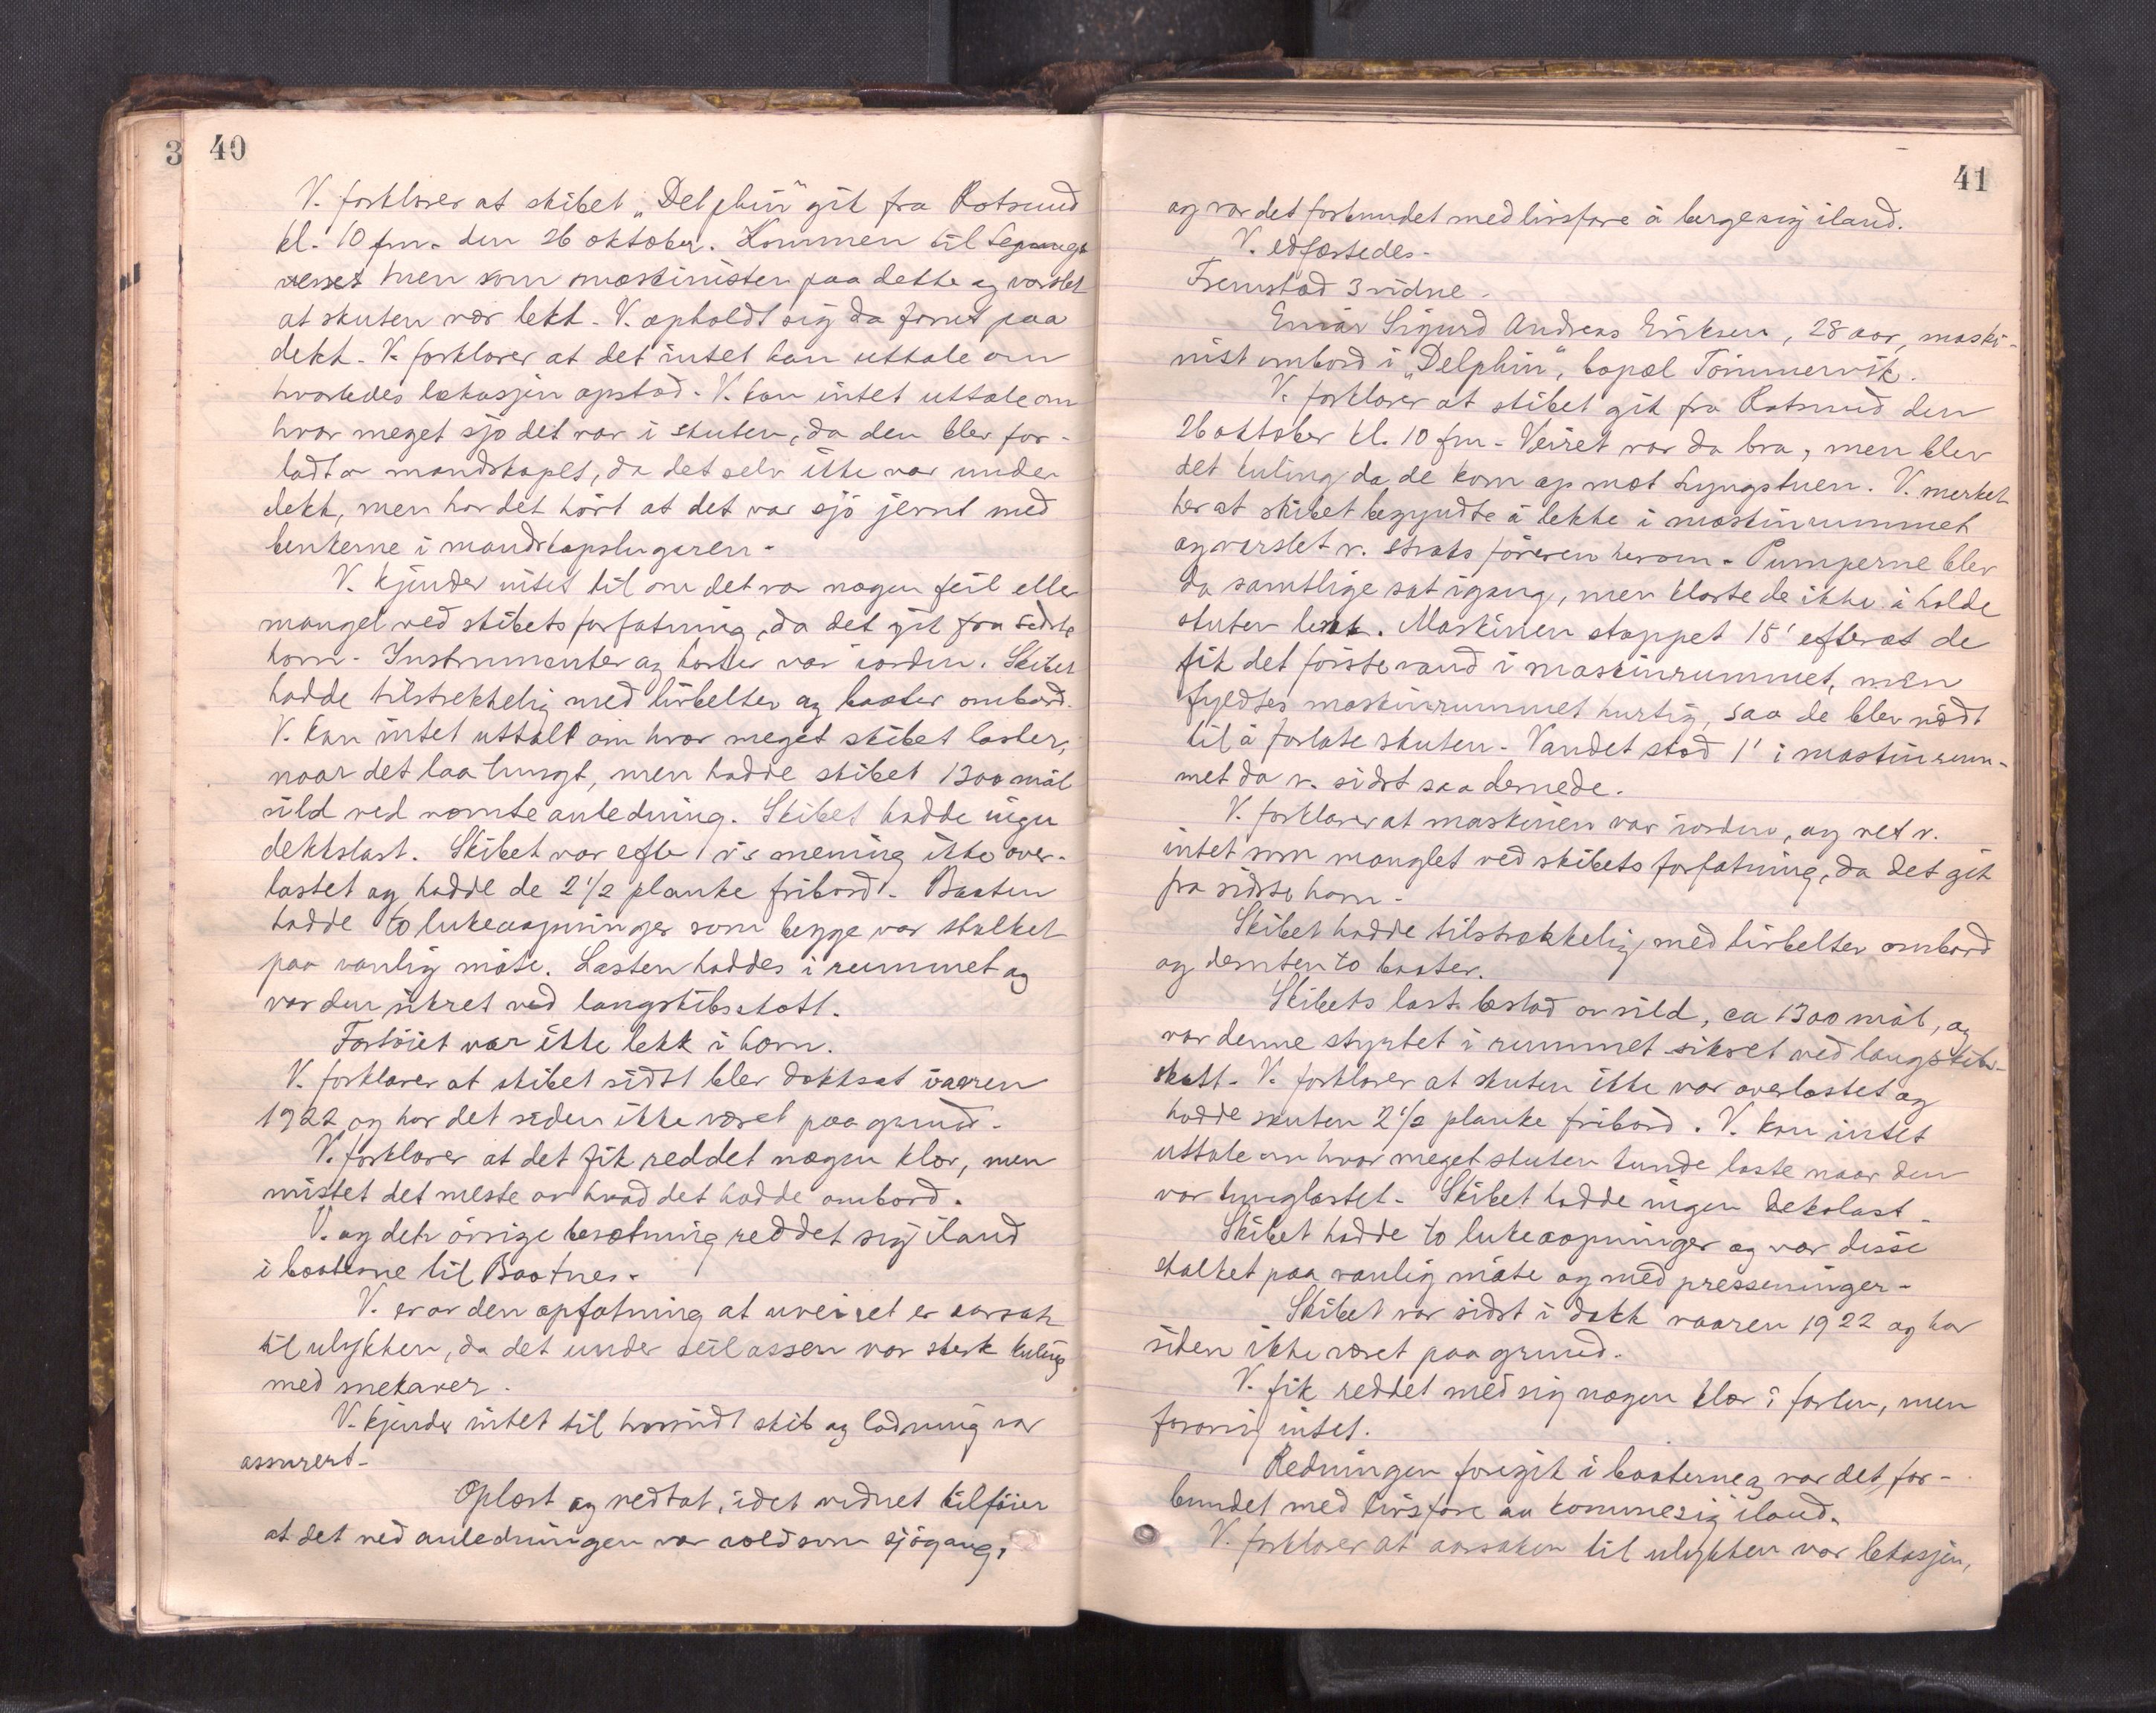 3 40
V. forklarer at skibet „Delphin" gik fra Rotsund
kl. 10 fm. den 26 oktober. Kommen til Lyngst
veret men kom maskinisten paa dekke og varslet
at skuten var lekk. V. opholdt sig da forut paa
dekk. V. forklarer at det intet kan uttale om
hvorledes lækasjen opstod. V. kan intet uttale om
hvor meget sjø det var i skuten, da den blev for-
latt av mandskapet, da det selv ikke var under
dekk, men har det hørt at det var sjø jevnt med
benkerne i mandskapslugaren.
V. kjender intet til om det var nogen feil eller
mangel ved skibets forfatning, da det gik fra sidste
havn. Instrumenter og karter var iorden. Skibet
hadde tilstrekkelig med livbelter og baater ombord.
V. kan intet uttale om hvor meget skibet laster,
naar det laa tungt, men hadde skibet 1300 mål
sild ved nævnte anledning. Skibet hadde ingen
dekkslast. Skibet var efter v's mening ikke over-
lastet og hadde de 2 1/2 planke fribord. Baaten
hadde to lukeaapninger som begge var skalket
paa vanlig måte. Lasten haddes i rummet og
var den sikret ved langskibsskott.
Fartöiet var ikke lekk i havn.
V. forklarer at skibet sidst blev dokksat vaaren
1922 og har det siden ikke været paa grund.
V. forklarer at det fik reddet nogen klær, men
mistet det meste av hvad det hadde ombord.
V. og den övrige besætning reddet sig iland
i baaterne til Baatnes.
V. er av den opfatning at uveiret er aarsak
til ulykken, da det under seilassen var sterk kuling
med snekaver.
V. kjender intet til hvorvidt skib og ladning var
assurert.
Oplæst og vedtat, idet vidnet tilföier
at det ved anledningen var voldsom sjögang,
41
og var det forbundet med livsfare å berge sig iland.
V. edfæstedes.
Fremstod 3 vidne.
Einar Sigurd Andreas Eriksen, 28 aar, maski-
nist ombord i „Delphin", bopæl Tömmervik.
V. forklarer at skibet gik fra Rotsund den
26 oktober kl. 10 fm. Veiret var da bra, men blev
det kuling da de kom op mot Lyngstuen. V. merket
her at skibet begyndte å lekke i maskinrummet
og varslet v. straks föreren herom. Pumperne blev
da samtlige sat igang, men klarte de ikke å holde
skuten lens. Maskinen stoppet 15' efterat de
fik det förste vand i maskinrummet, men
fyldtes maskinrummet hurtig, saa de blev nödt
til å forlate skuten. Vandet stod 1' i maskinrum-
met da v. sidst saa dernede.
V. forklarer at maskinen var iorden, og vet v.
intet som manglet ved skibets forfatning, da det gik
fra sidste havn.
Skibet hadde tilstrækkelig med livbelter ombord
og desuten to baater.
Skibets last bestod av sild, ca 1300 mål, og
var denne styrtet i rummet sikret ved langskibs-
skott. V. forklarer at skuten ikke var overlastet og
hadde skuten 2 1/2 planke fribord. V. kan intet
uttale om hvor meget skuten kunde laste naar den
var tunglastet. Skibet hadde ingen dekslast.
Skibet hadde to lukeaapninger og var disse
skalket paa vanlig måte og med presseninger.
Skibet var sidst i dokk vaaren 1922 og har
siden ikke været paa grund.
V. fik reddet med sig nogen klær i farten, men
forövrig intet.
Redningen foregik i baaterne og var det for-
bundet med livsfare aa komme sig iland.
V. forklarer at aarsaken til ulykken var lekasjen,